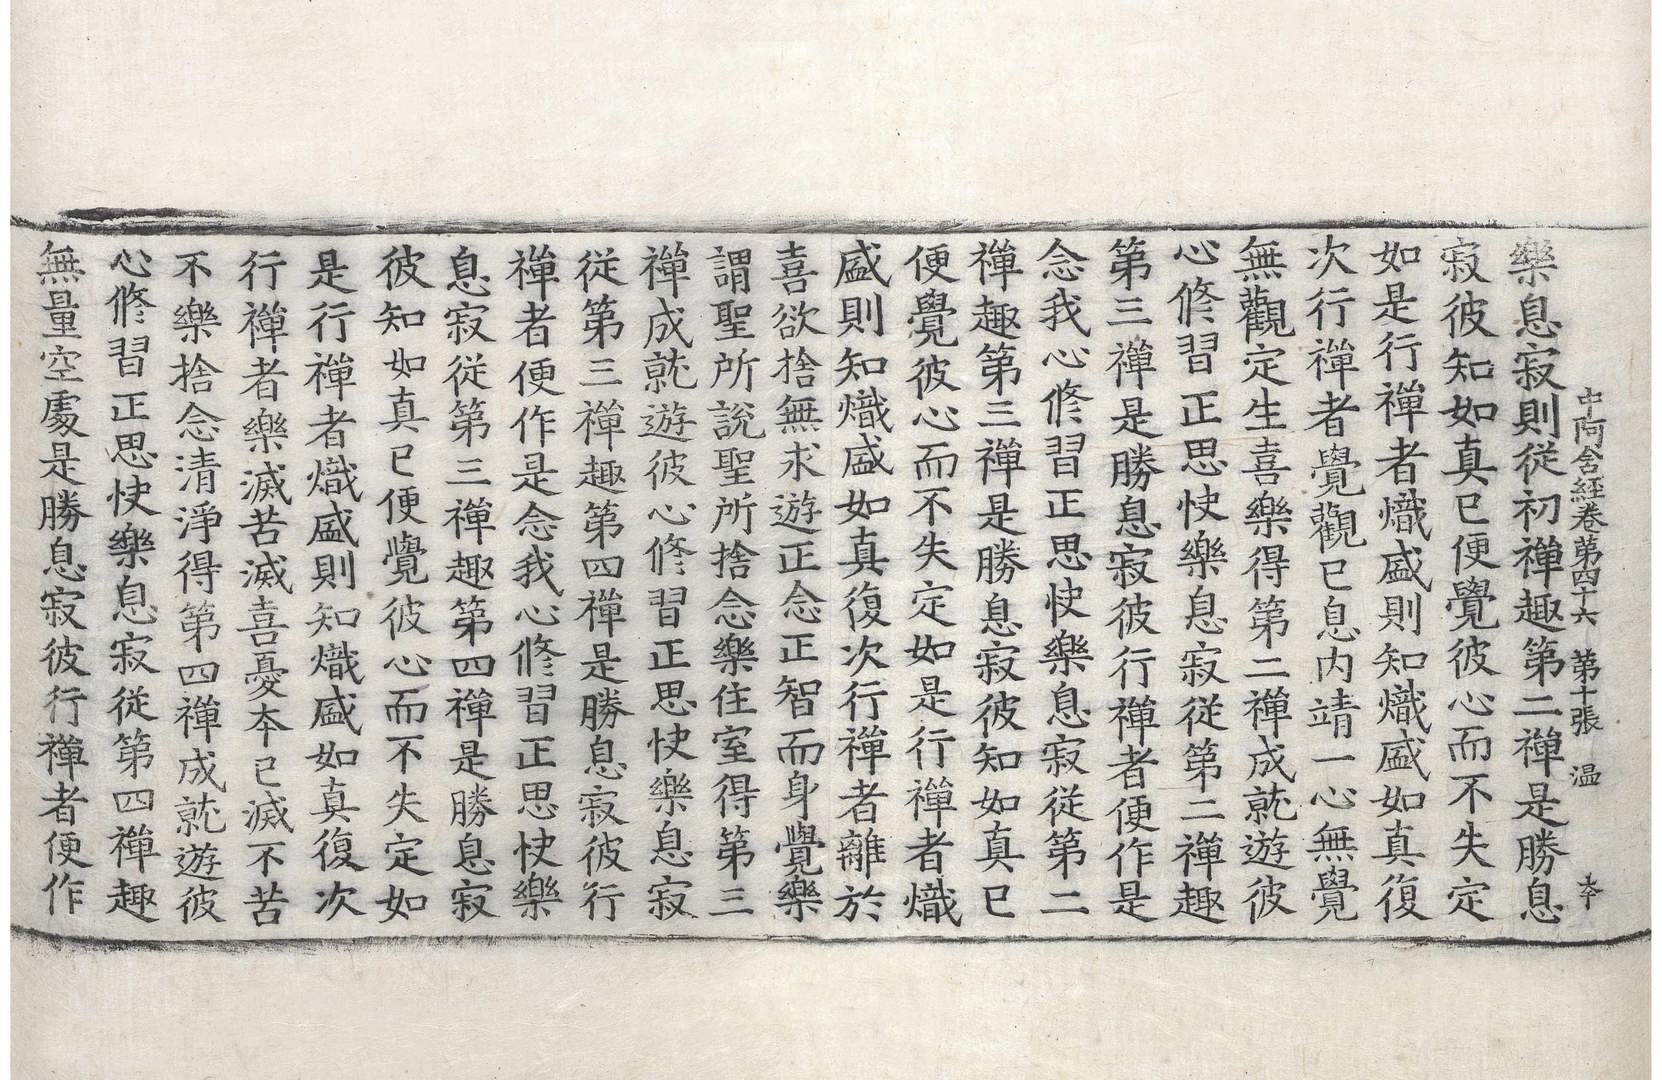 中阿含経卷第四十六　第十張　温
樂息寂則從初禪趣第二禪是勝息
寂彼知如真已便覺彼心而不失定
如是行禪者熾盛則知熾盛如真復
次行禪者覺觀已息内靖一心無覺
無觀定生喜樂得第二禪成就遊彼
心修習正思快樂息寂從第二禪趣
第三禪是勝息寂彼行禪者便作是
念我心修習正思快樂息寂從第二
禪趣第三禪是勝息寂彼知如真已
便覺彼心而不失定如是行禪者熾
盛則知熾盛如真復次行禪者離於
喜欲捨無求遊正念正智而身覺樂
謂聖所說聖所捨念樂住室得第三
禪成就遊彼心修習正思快樂息寂
從第三禪趣第四禪是勝息寂彼行
禪者便作是念我心修習正思快樂
息寂從第三禪趣第四禪是勝息寂
彼知如真已便覺彼心而不失定如
是行禪者熾盛則知熾盛如真復次
行禪者樂滅苦滅喜憂本已滅不苦
不樂捨念清淨得第四禪成就遊彼
心修習正思快樂息寂從第四禪趣
無量空處是勝息寂彼行禪者便作